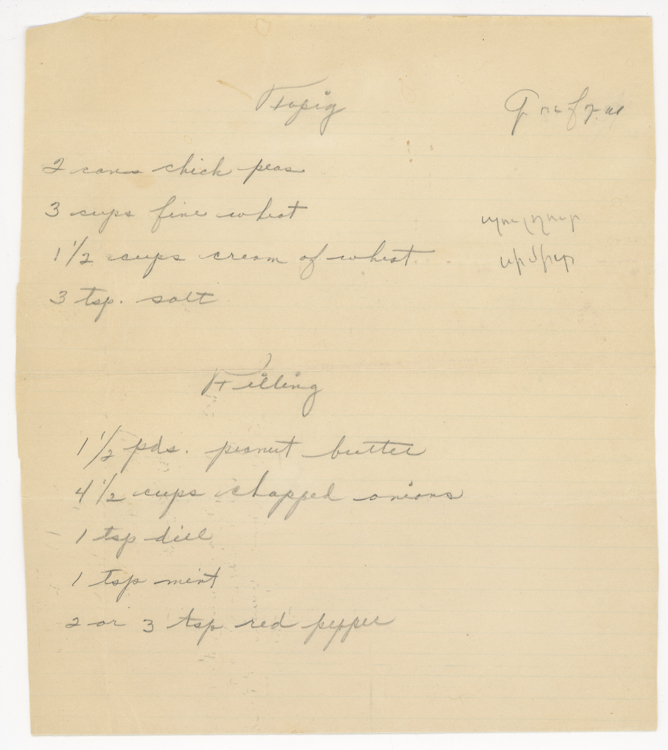 Topig
2 cans chick peas
3 cups fine wheat
պուլղուր
1 1/2 cups cream of wheat
3 tsp. salt
Filling
1 1/2 pds. peanut butter
4 1/2 cups chopped onions
1 tsp dill
1 tsp mint
2 or 3 tsp red pepper